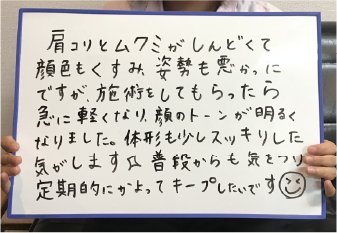 肩コリとムクミがしんどくて
顔色もくすみ、姿勢も悪かった
ですが、施術をしてもらったら
急に軽くなり、顔のトーンが明るく
なりました。体形も少しスッキリした
気がします☆ 普段からも気をつけ
定期的にかよってキープしたいです